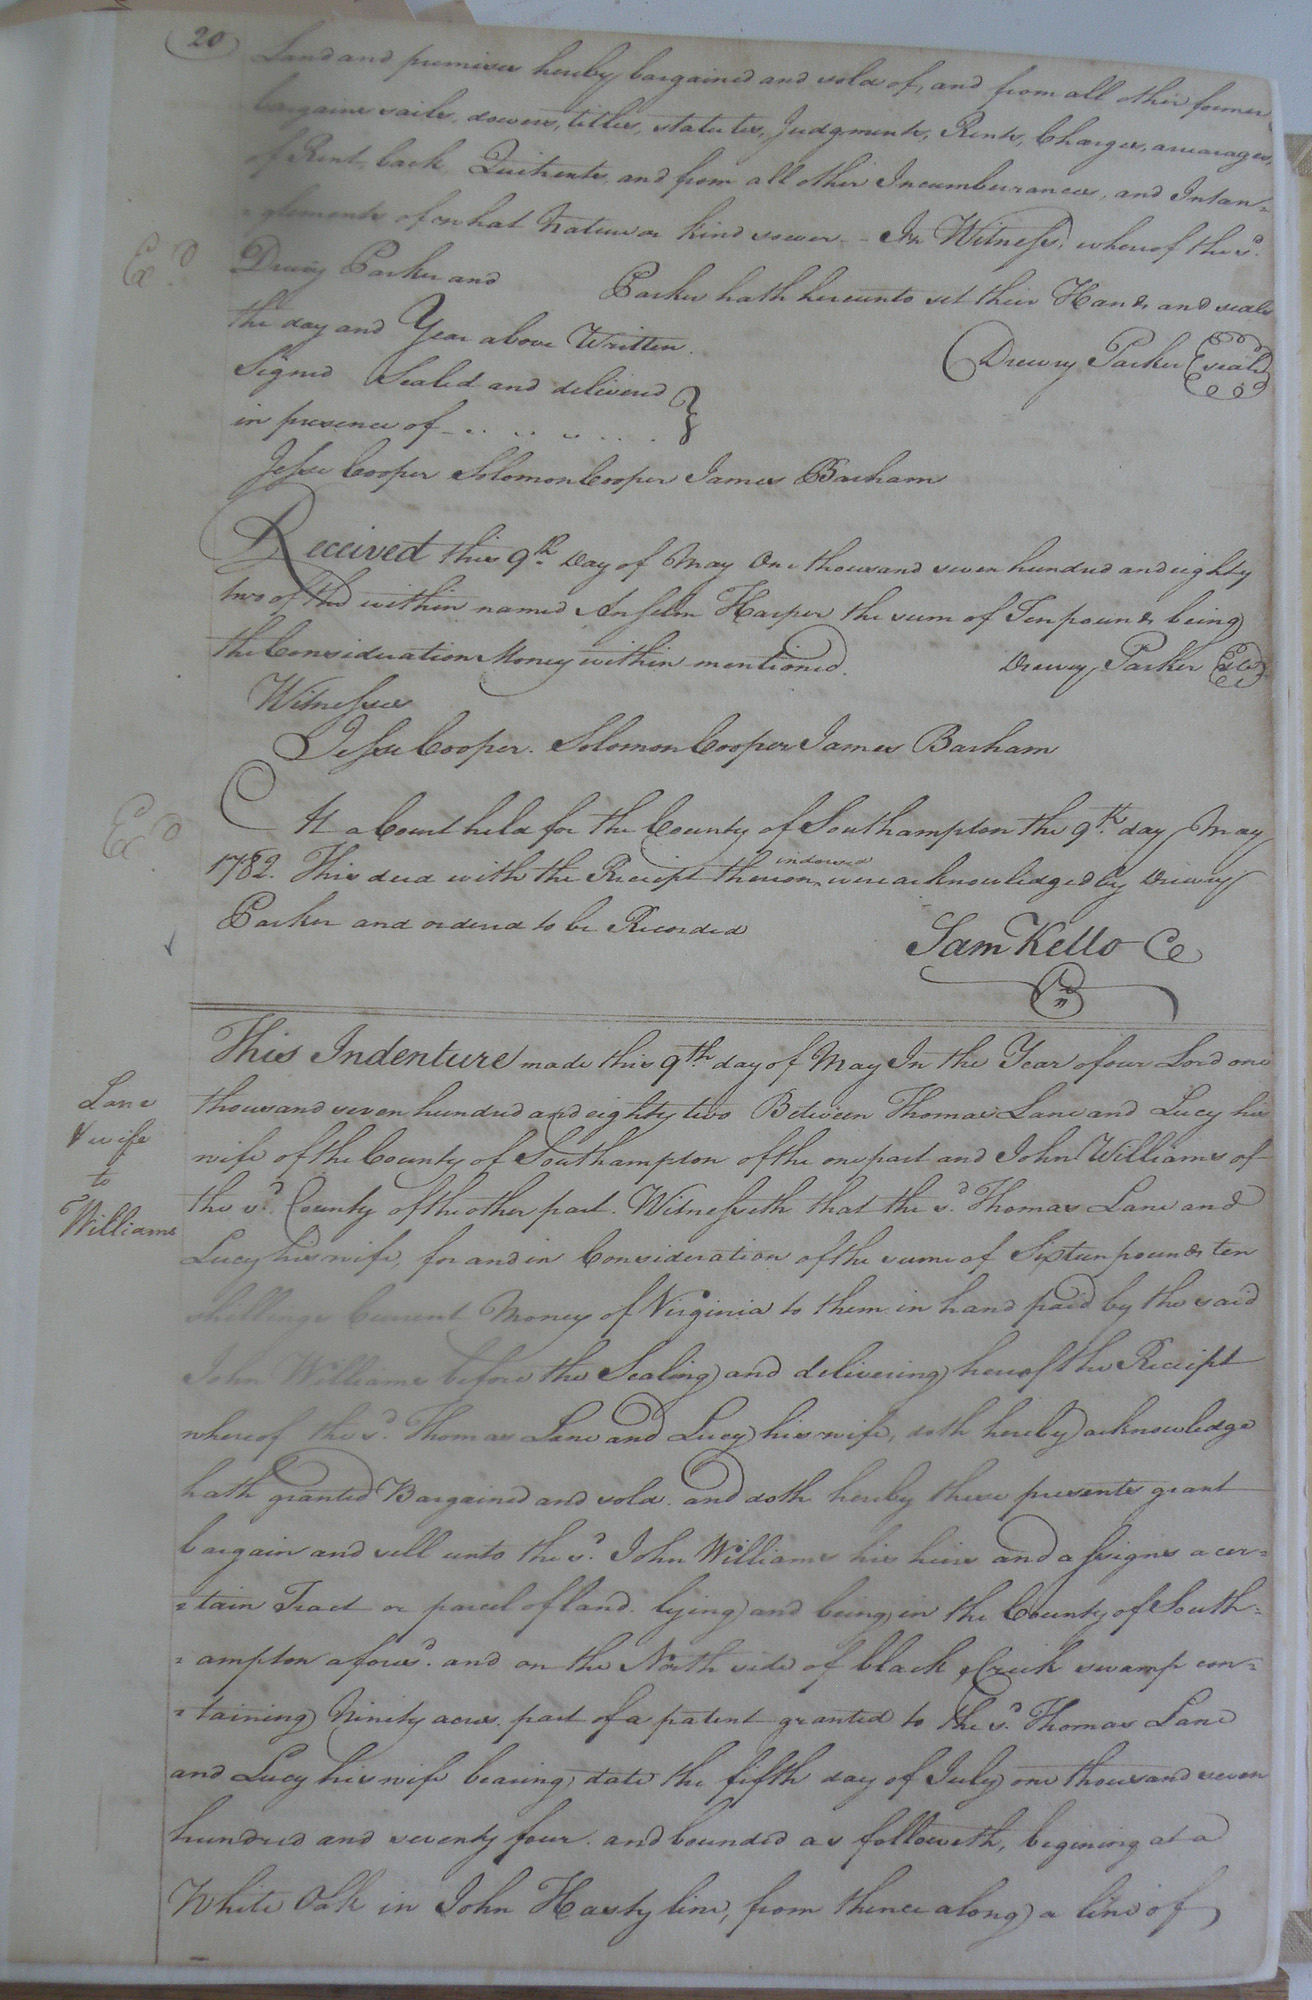 20
Land and premises hereby bargained and sold of, and from all other former
bargains sails, dowers, titles, statutes, Judgments, Rents, Charges, arrearages,
of Rent, back Quitrents, and from all other Incumberances, and Intan=
=glements of what Nature or kind soever. - In Witness, whereof the sd.
Exd.
Drury Parker and Parker hath hereunto set their Hands and seals
the day and Year above Written.
Drewry Parker (seal)
Signed Sealed and delivered
in presence of
Jesse Cooper Solomon Cooper James Barham
Received this 9th. Day of May One thousand seven hundred and eighty
two of the within named Anselm Harper the sum of Ten pounds being
the Consideration Money within mentioned. Drewry Parker
Witnesses
Jesse Cooper. Solomon Cooper James Barham
At a Court held for the County of Southampton the 9th. day May
Exd.
1782. This deed with the Receipt thereon indorsed were acknowledged by Drewry
Parker and ordered to be Recorded
Sam Kello
This Indenture made this 9th day of May In the Year of our Lord one
Lane
& wife
to
Williams
thousand seven hundred and eighty two Between Thomas Lane and Lucy his
wife of the County of Southampton of the one part and John Williams of
the sd. County of the other part. Witnesseth that the sd. Thomas Lane and
Lucy his wife, for and in Consideration of the sume of Sixteen pounds ten
shillings Current Money of Virginia to them in hand paid by the said
John Williams before the Sealing and delivering hereof the Receipt
whereof the sd. Thomas Lane and Lucy his wife, doth hereby acknowledge
hath granted Bargained and sold. and doth hereby these presents grant
bargain and sell unto the sd. John Williams his heirs and assigns a cer=
=tain Tract or parcel of land. lying and being in the County of South=
=ampton afoursd. and on the North side of black Creek swamp con=
=taining Ninety acres. part of a patent granted to the sd. Thomas Lane
and Lucy his wife bearing date the fifth day of July one thousand seven
hundred and seventy four. and bounded as followeth, begining at a
White Oak in John Hasty line, from thence along a line of